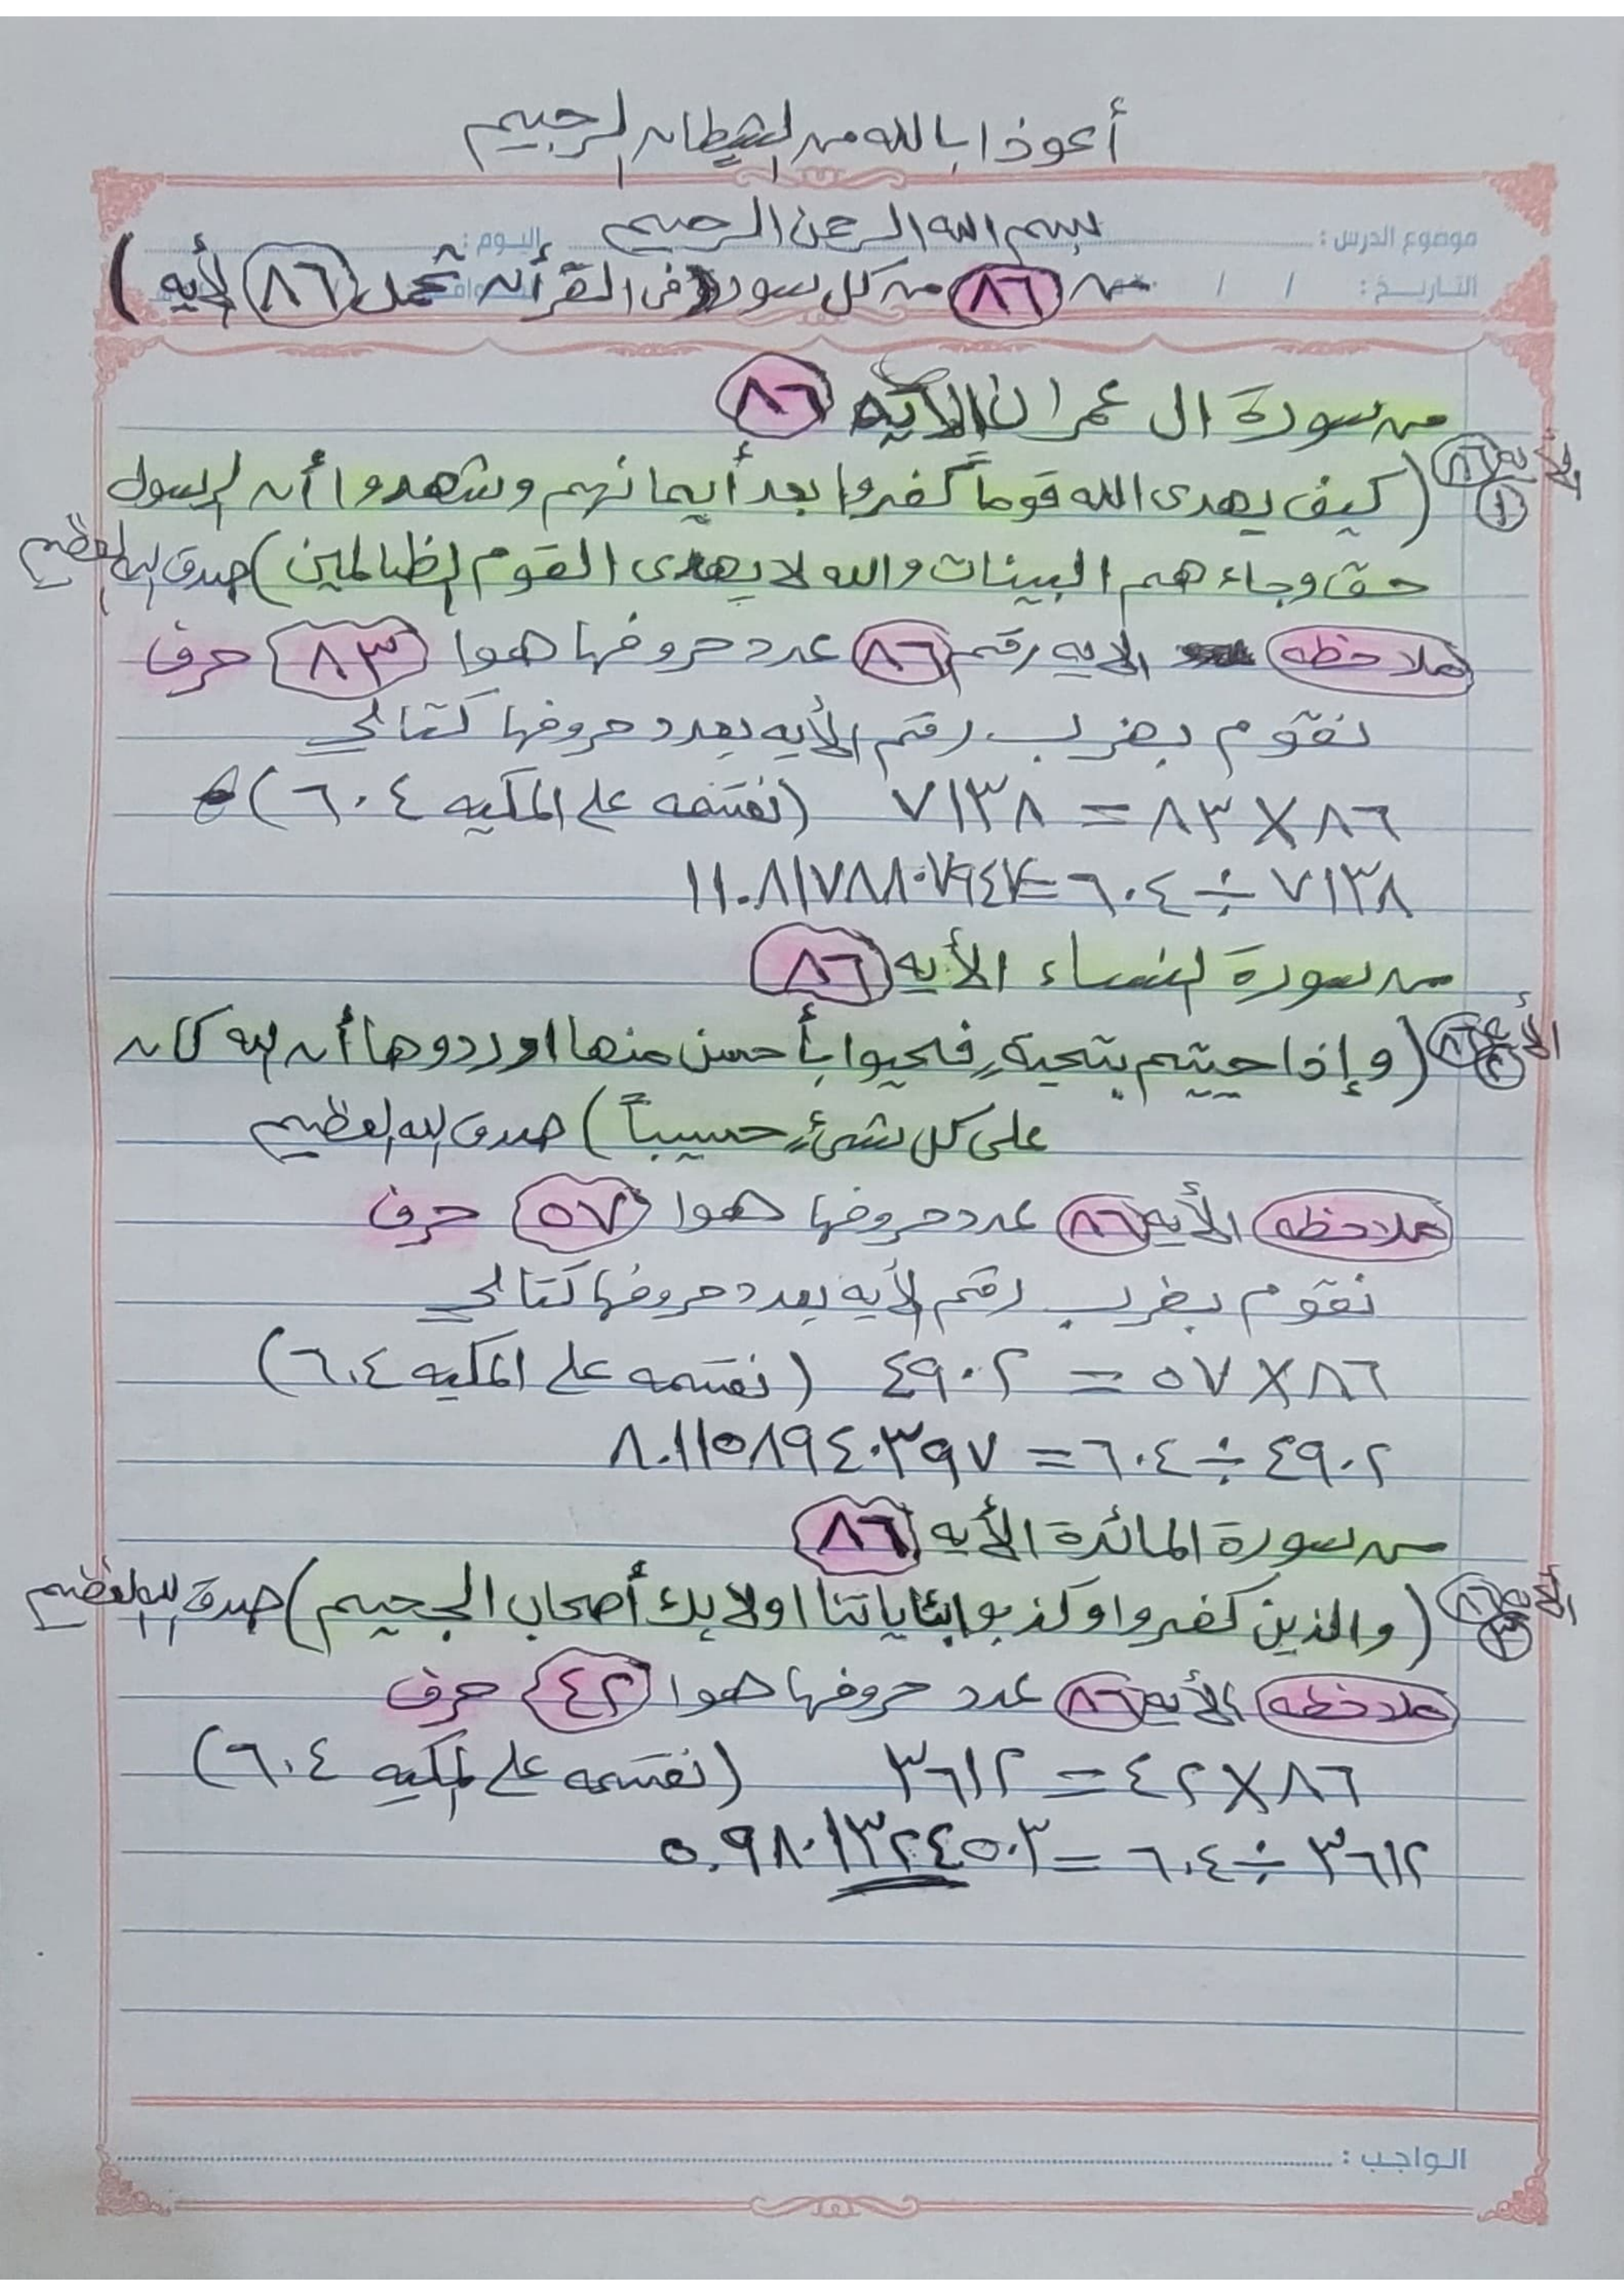 أعوذا بالله من الشيطان الرجيم
بسم الله الرحمن الرحيم
موضوع الدرس : اليوم :
التاريخ : / /
من (٨٦) من كل سورة فى القرأن تحمل (٨٦) لأيه )
من سورة ال عمران الآيه ٨٦
الأيه ٨٦ ١
(كيف يهدى الله قوماً كفروا بعد أيمانهم وشهدوا أن الرسول
حق وجاءهم البينات والله لا يهدى القوم الظالمين) صدق الله العظيم
ملاحظه الايه رقم ٨٦ عدد حروفها هوا ٨٣ حرف
نقوم بضرب رقم الأيه بعدد حروفها كتالي
٨٦ × ٨٣ = ٧١٣٨ (نقسمه على المكيه ٦٠٤)
٧١٣٨ ÷ ٦٠٤ = ١١.٨١٧٨٨٠٧٩٤٧
من سورة النساء الأيه ٨٦
الأيه ٨٦ ٢
(وإذا حييتم بتحيةٍ فحيوا بأحسن منها او ردوها أن الله كان
على كل شئٍ حسيباً) صدق الله العظيم
ملاحظه الأيه ٨٦ عدد حروفها هوا ٥٧ حرف
نقوم بضرب رقم الأيه بعدد حروفها كتالي
٨٦ × ٥٧ = ٤٩٠٢ (نقسمه على المكيه ٦٠٤)
٤٩٠٢ ÷ ٦٠٤ = ٨.١١٥٨٩٤٠٣٩٧
من سورة المائدة الأيه ٨٦
الأيه ٨٦ ٣
(والذين كفروا وكذبوا بئاياتنا اولايك أصحاب الجحيم) صدق الله العظيم
ملاحظه الأيه ٨٦ عدد حروفها هوا ٤٢ حرف
٨٦ × ٤٢ = ٣٦١٢ (نقسمه على المكيه ٦٠٤)
٣٦١٢ ÷ ٦٠٤ = ٥.٩٨٠١٣٢٤٥٠٣
الواجب :